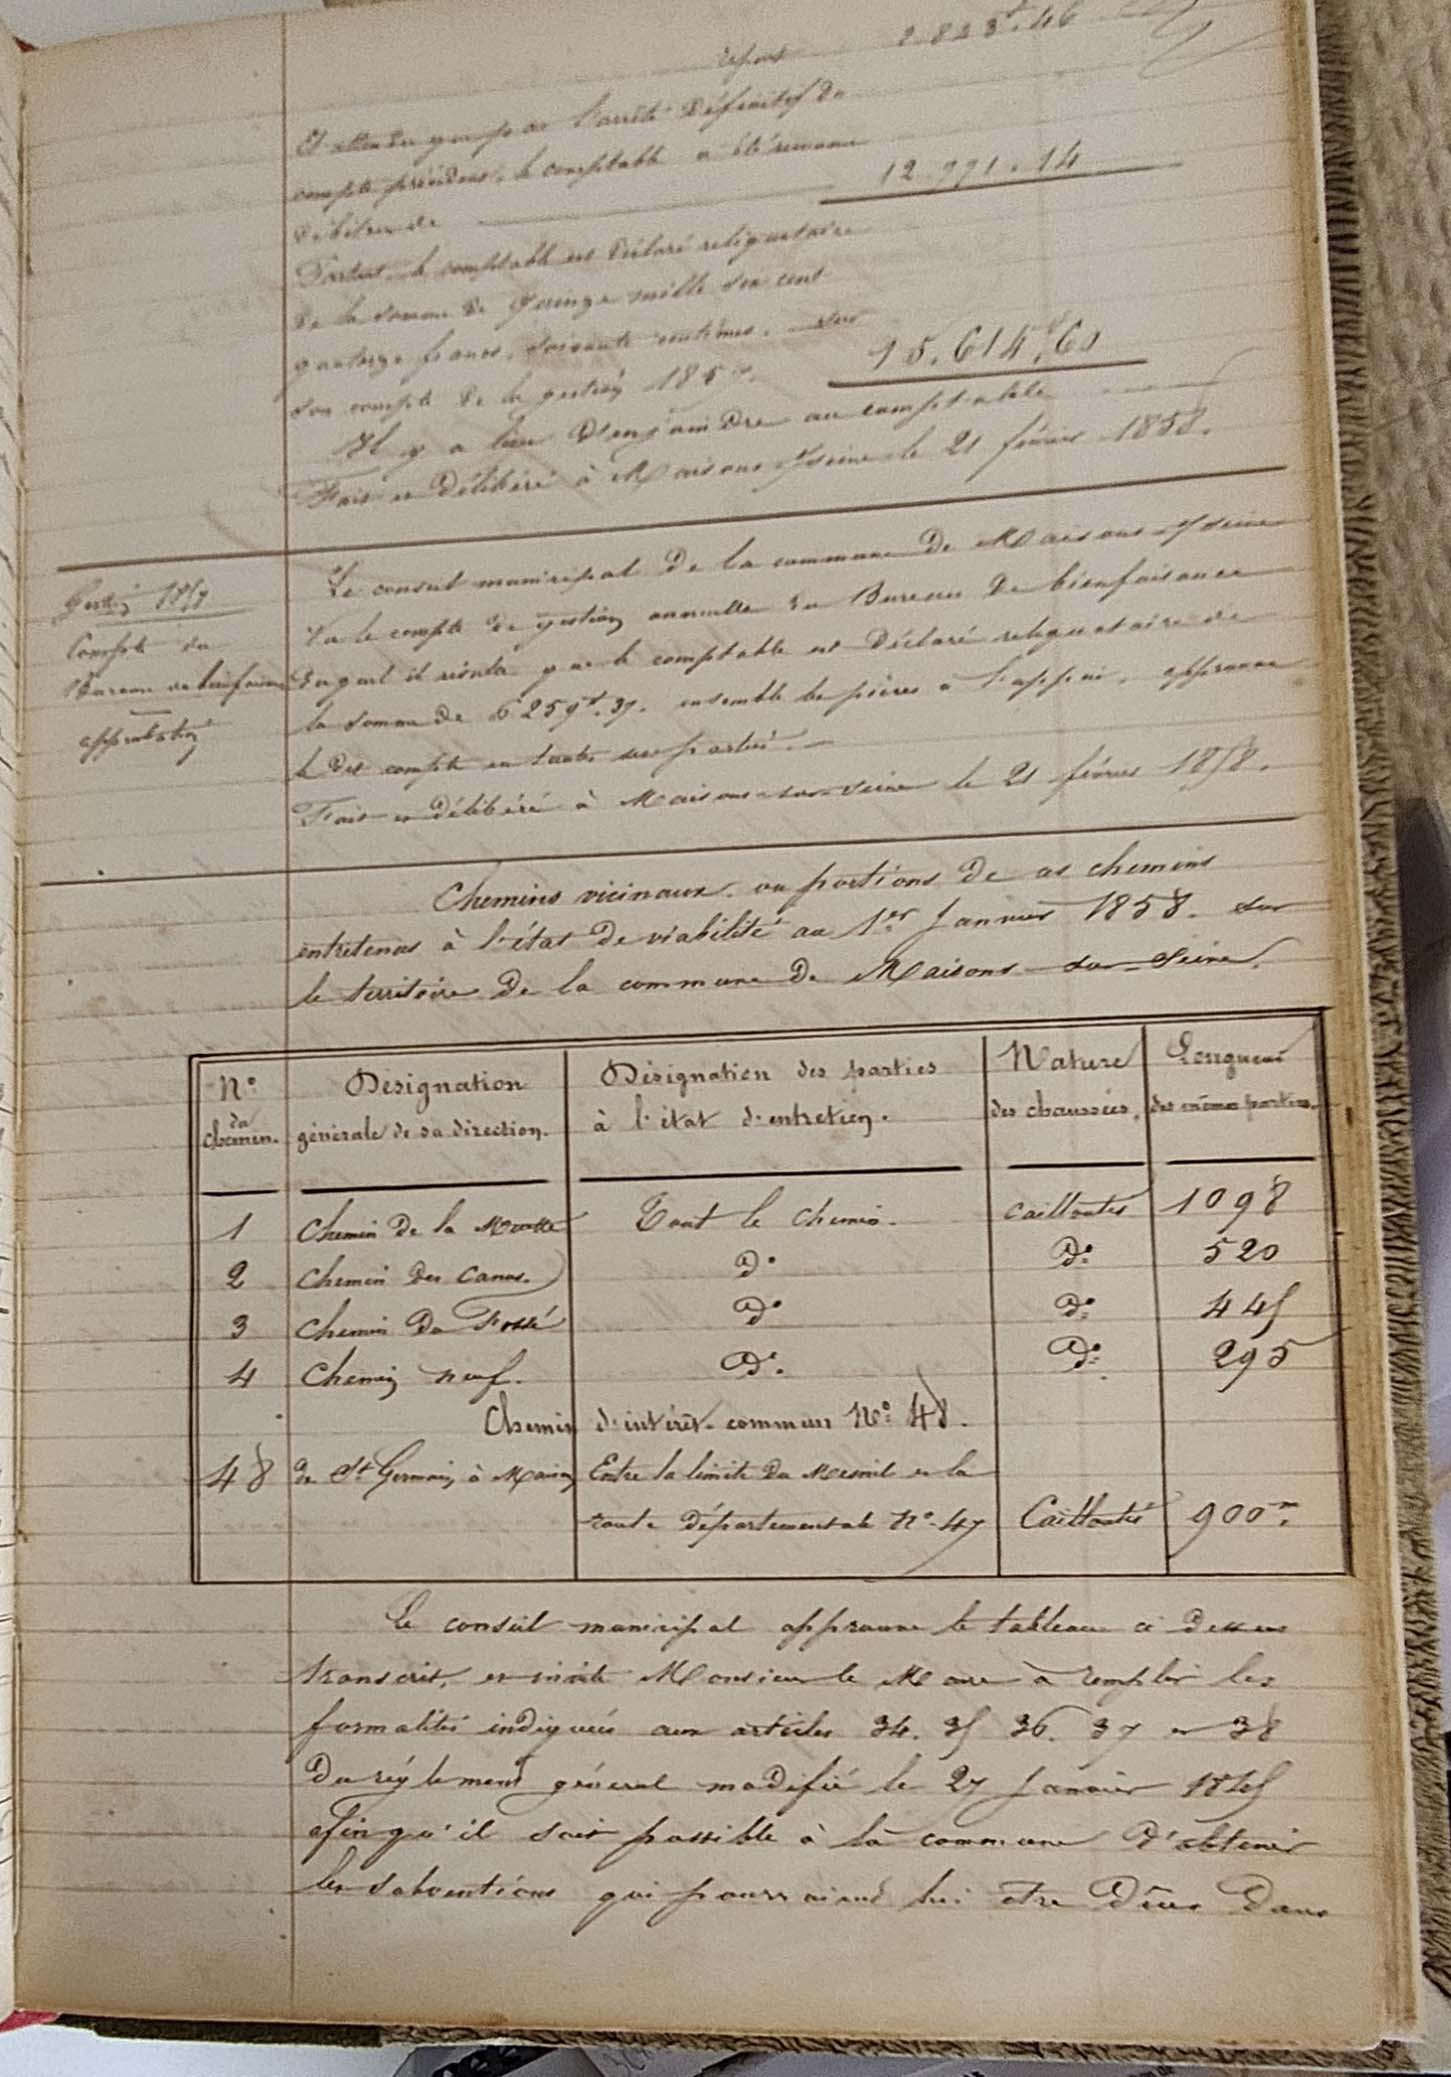 report 2.823f.46
Et attendu que par l'arrêté définitif du
compte précédent, le comptable a été reconnu
débiteur de 12.791.14
Partant, le comptable est déclaré reliquataire
de la somme de quinze mille six cent
quatorze francs, soixante centimes. sur
son compte de la gestion 1857. 15.614f.60
Il y a lieu d'enjoindre au comptable
Fait et délibéré à Maisons s/ seine le 21 février 1858.
Gestion 1857
Compte du
Bureau de bienfaisance
approbation
Le conseil municipal de la commune de Maisons s/ seine
Vu le compte de gestion annuelle du Bureau de bienfaisance
duquel il résulte que le comptable est déclaré reliquataire de
la somme de 6259f.37. ensemble les pièces à l'appui, approuve
le dit compte en toutes ses parties.
Fait et délibéré à Maisons-sur-seine le 21 février 1858.
Chemins vicinaux ou portions de ces chemins
entretenus à l'état de viabilité au 1er Janvier 1858. sur
le territoire de la commune de Maisons-sur-Seine.
No du chemin. Désignation générale de sa direction. Désignation des parties à l'état d'entretien. Nature des chaussées. Longueur des mêmes parties.
1 Chemin de la Muette Tout le chemin. Cailloutés 1098
2 Chemin des Canus. do do 520
3 Chemin du Fossé do do 445
4 Chemin neuf. do. do 295
Chemin d'intérêt commun No 48.
48 de St Germain à Maisons Entre la limite du Mesnil et la
route départementale No 47 Cailloutés 900m.
Le conseil municipal approuve le tableau ci dessus
transcrit, et invite Monsieur le Maire à remplir les
formalités indiquées aux articles 34. 35 36. 37 et 38
du réglement général modifié le 27 Janvier 1845
afin qu'il soit possible à la commune d'obtenir
les subventions qui pourraient lui être dûes dans